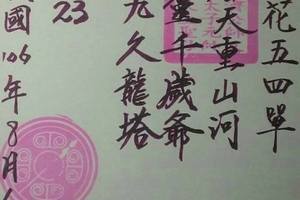 花五四單
天重山河
千歲爺
久龍塔
23
國106年8月